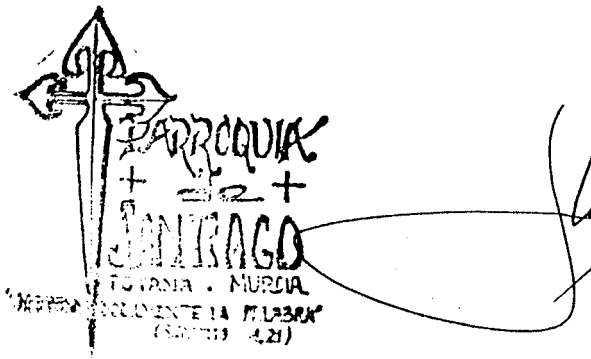 PARROQUIA
+ de +
SANTIAGO
TOTANA . MURCIA
LA PALABRA"
(SANTIAGO 1,21)